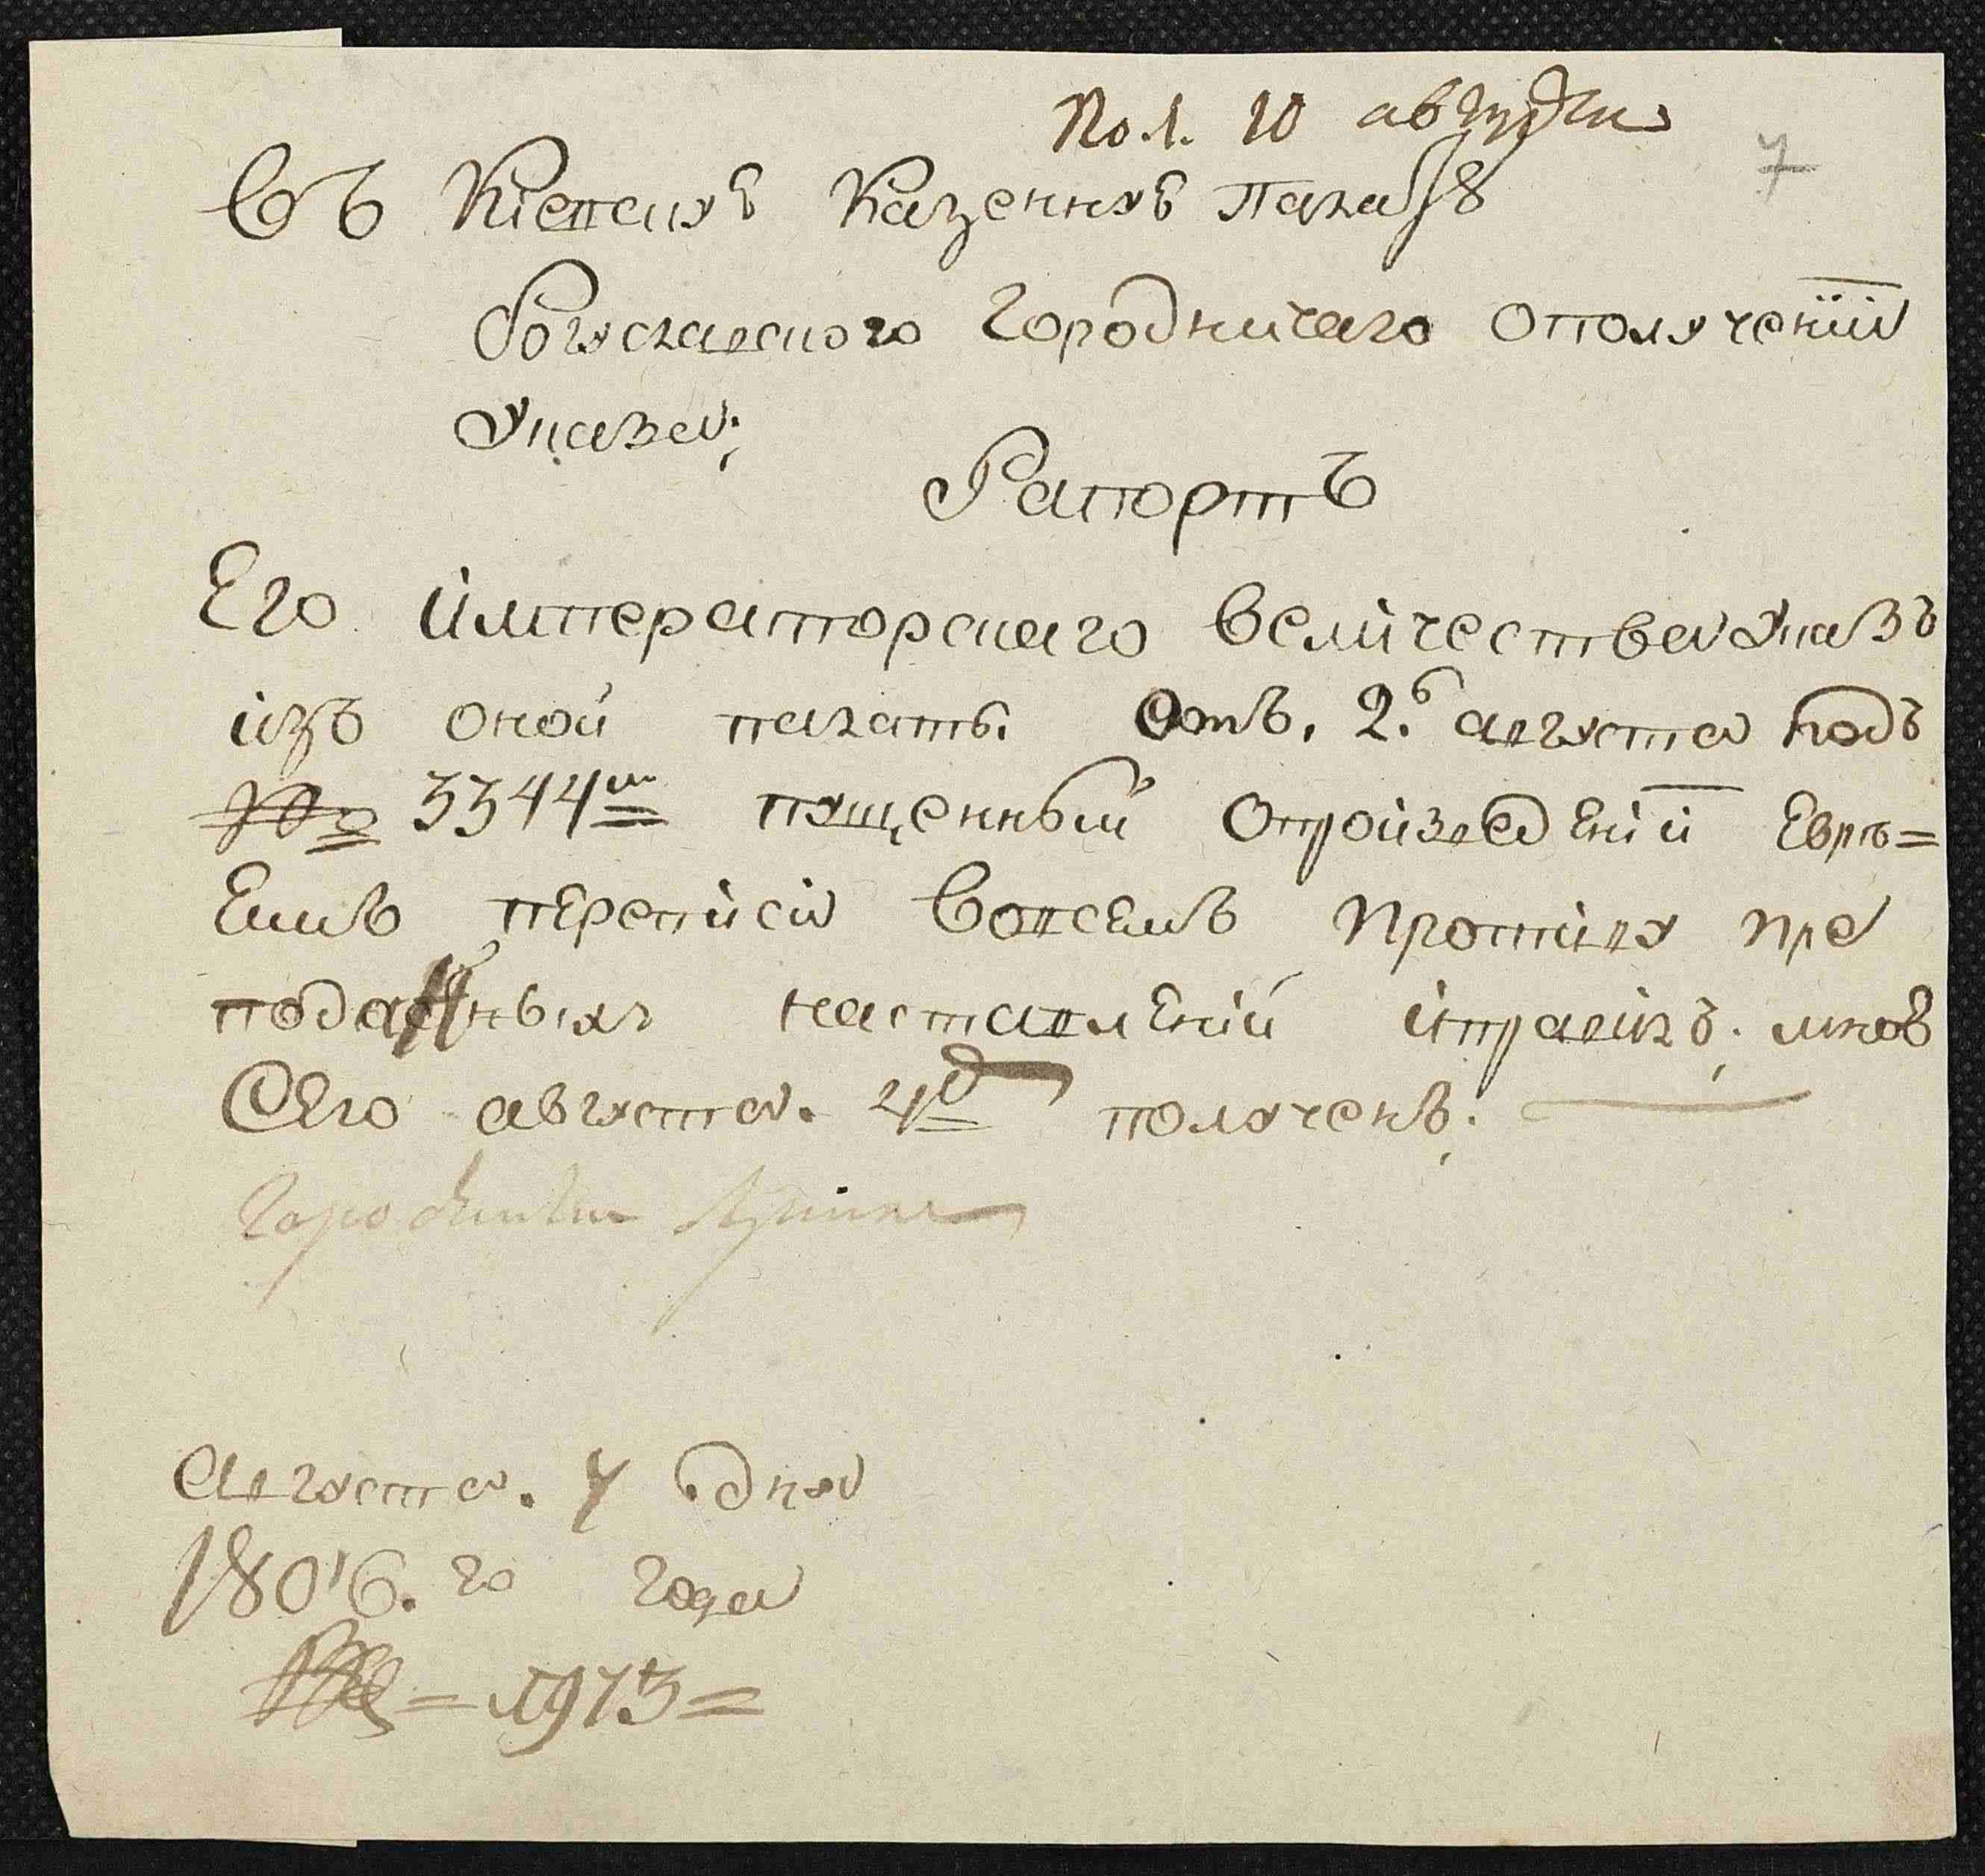 Пол. 10 августа
7
Въ Кіевскую Казенную Палату
Богуславского Городничаго ополученіи
Указа;
Рапортъ
Его Императорскаго Величества Указъ
изъ оной палаты. отъ. 2.го августа подъ
№о 3344м пущенный опроизведеніи Евре=
Емъ переписи Вовсемъ противу пре
поданныхъ наставленій иправилъ; мною
Сего августа. 4д полученъ;
Городничий
Августа. 4 дня
1806.го года
№ = 1913 =